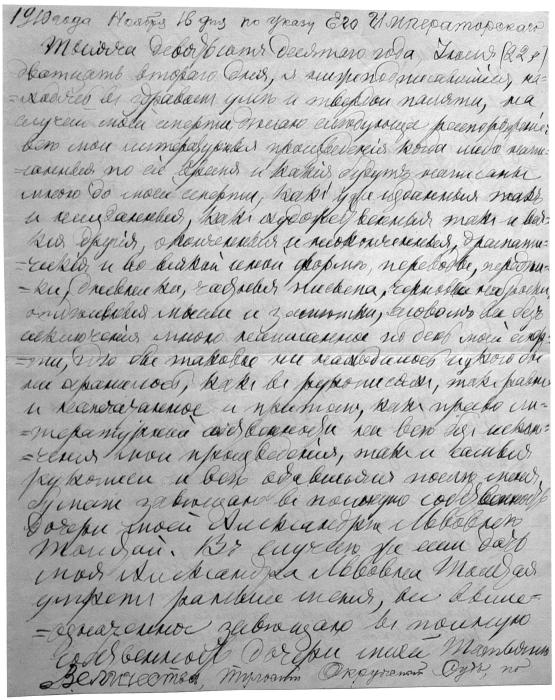 1910 года Ноября 16 дня по указу Его Императорскаго
Тысяча девятьсот десятого года, Июля (22)
двадцать второго дня, я нижеподписавшийся, на-
=ходясь в здравом уме и твердой памяти, на
случай моей смерти делаю следующее распоряжение:
все мои литературныя произведения, когда либо напи-
санныя по сие время и какия будут написаны
мною до моей смерти, как уже изданныя, так
и неизданныя, как художественныя, так и вся-
кия другия, оконченныя и неоконченныя, драмати-
=ческия и во всякой иной форме, переводы, передел-
ки, дневники, частныя письма, черновые наброски,
отдельныя мысли и заметки, словом все без
исключения мною написанное по день моей смер-
=ти, где бы таковое ни находилось и у кого бы
ни хранилось, как в рукописях, так равно
и напечатанное и притом, как право ли-
=тературной собственности на все без исклю-
=чения мои произведения, так и самыя
рукописи и все оставшияся после меня
бумаги завещаю в полную собственность
дочери моей Александре Львовне
Толстой. В случае же если дочь
моя Александра Львовна Толстая
умрет раньше меня, все выше-
=означенное завещаю в полную
собственность дочери моей Татьяне
Величества, Тульский Окружный Суд, по